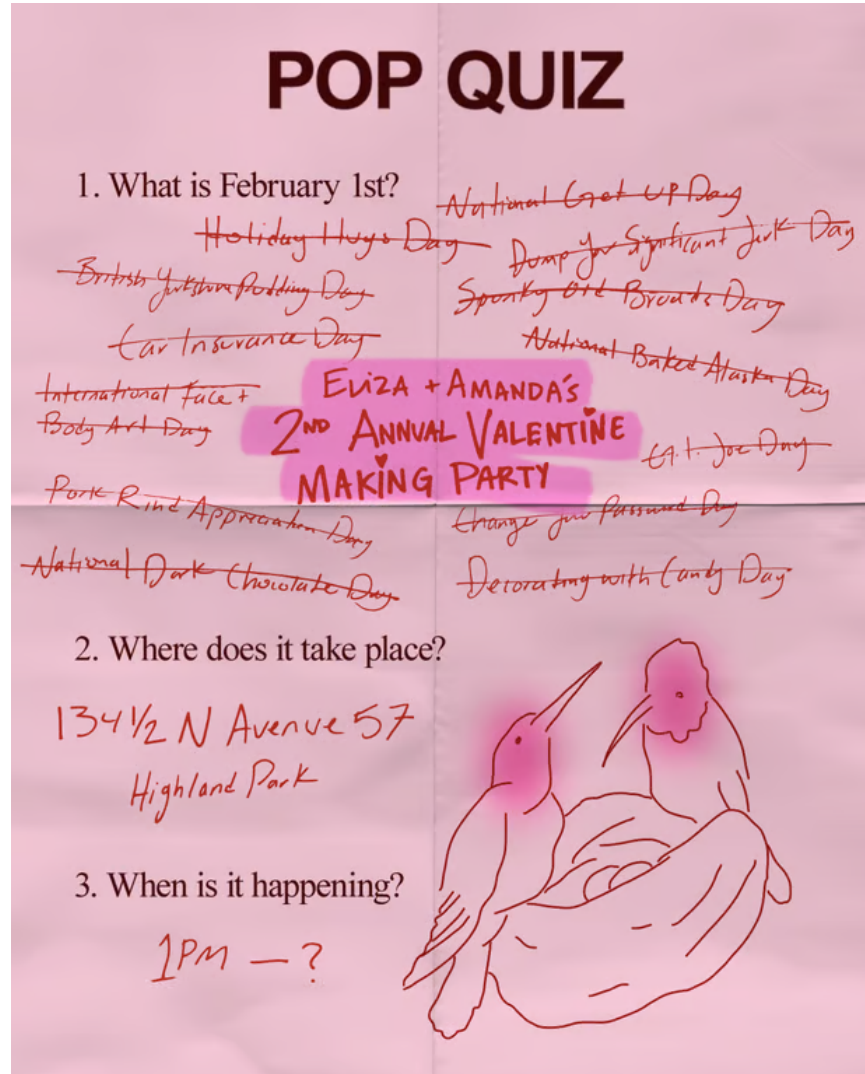 POP QUIZ
1. What is February 1st?
National Get UP Day
Holiday Hugs Day
Dump Your Significant Jerk Day
British Yorkshire Pudding Day
Spunky Old Broads Day
Car Insurance Day
National Baked Alaska Day
International Face +
Body Art Day
ELIZA + AMANDA'S
2ND ANNUAL VALENTINE
MAKING PARTY
G.I. Joe Day
Pork Rind Appreciation Day
Change Your Password Day
National Dark Chocolate Day
Decorating with Candy Day
2. Where does it take place?
134 1/2 N Avenue 57
Highland Park
3. When is it happening?
1PM — ?